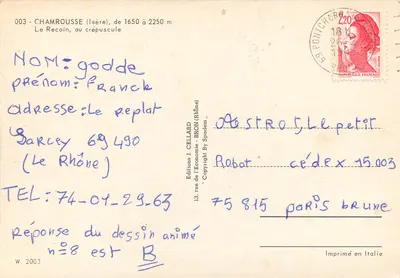 003 - CHAMROUSSE (Isère), de 1650 à 2250 m
Le Recoin, au crépuscule
NOM: godde
prénom: Franck
adresse: Le replat
Sarcey 69490
(Le Rhône)
TEL: 74-01-29-63
réponse du dessin animé
n=8 est B
W. 2003
Editions J. CELLARD
13, rue de l'Economie - BRON (Rhône)
Copyright By Spadem
69 PONTCHARRA
18 H
2,20
ASTROS, Le petit
Robot cédex 15.003
75 815 paris brune
Imprimé en Italie